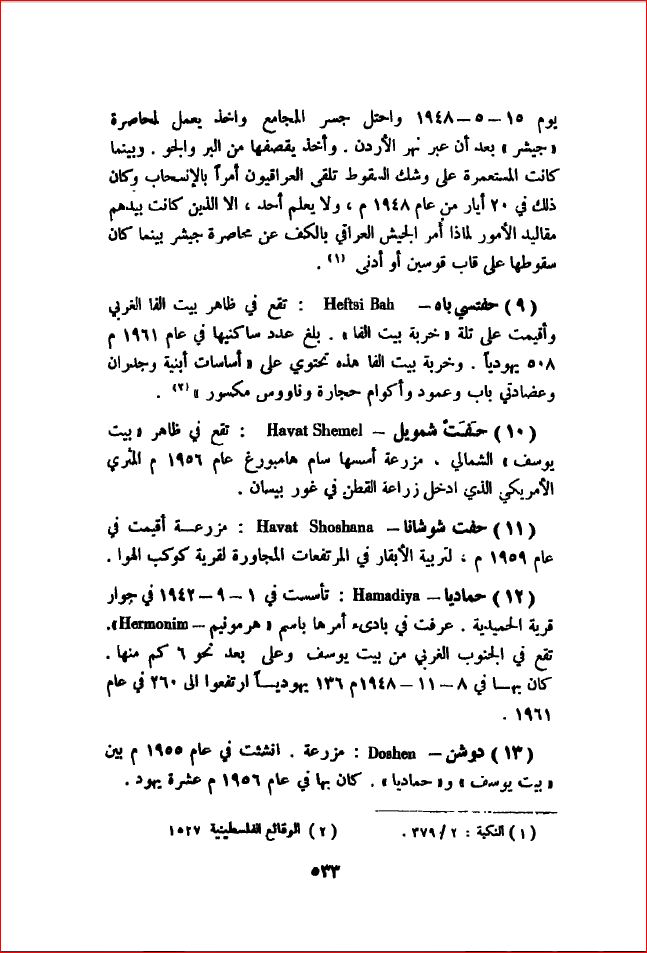 يوم ١٥ – ٥ – ١٩٤٨ واحتل جسر المجامع واخذ يعمل لمحاصرة
« جيشر » بعد أن عبر نهر الأردن . وأخذ يقصفها من البر والجو . وبينما
كانت المستعمرة على وشك السقوط تلقى العراقيون أمراً بالإنسحاب وكان
ذلك في ٢٠ أيار من عام ١٩٤٨ م ، ولا يعلم أحد ، الا الذين كانت بيدهم
مقاليد الأمور لماذا أُمر الجيش العراقي بالكف عن محاصرة جيشر بينما كان
سقوطها على قاب قوسين أو أدنى (١) .
(٩) حفتسي باه – Heftsi Bah : تقع في ظاهر بيت الفا الغربي
وأقيمت على تلة « خربة بيت الفا » . بلغ عدد ساكنيها في عام ١٩٦١ م
٥٠٨ يهودياً . وخربة بيت الفا هذه تحتوي على « أساسات أبنية وجدران
وعضادتي باب وعمود وأكوام حجارة وناووس مكسور » (٢) .
(١٠) حَفَتْ شمويل – Havat Shemel : تقع في ظاهر « بيت
يوسف » الشمالي . مزرعة أسسها سام هامبورغ عام ١٩٥٦ م المثري
الأمريكي الذي ادخل زراعة القطن في غور بيسان .
(١١) حفت شوشانا – Havat Shoshana : مزرعة أقيمت في
عام ١٩٥٩ م ، لتربية الأبقار في المرتفعات المجاورة لقرية كوكب الهوا .
(١٢) حماديا – Hamadiya : تأسست في ١ – ٩ – ١٩٤٢ في جوار
قرية الحميدية . عرفت في بادىء أمرها باسم « هرمونيم – Hermonim ».
تقع في الجنوب الغربي من بيت يوسف وعلى بعد نحو ٦ كم منها .
كان بها في ٨ – ١١ – ١٩٤٨م ١٣٦ يهودياً ارتفعوا الى ٢٦٠ في عام
١٩٦١ .
(١٣) دوشن – Doshen : مزرعة . انشئت في عام ١٩٥٥ م بين
« بيت يوسف » و« حماديا » . كان بها في عام ١٩٥٦ م عشرة يهود .
(١) النكبة : ٢ / ٣٧٩ . (٢) الوقائع الفلسطينية ١٥٢٧
٥٣٣